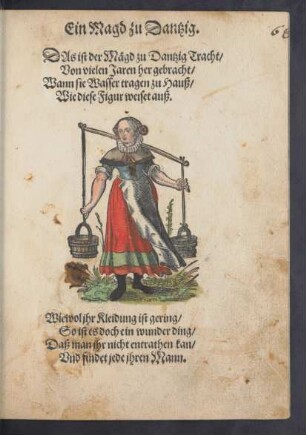 Ein Magd zu Dantzig.
6
DAs ist der Mägd zu Dantzig Tracht/
Von vielen Jaren her gebracht/
Wann sie Wasser tragen zu Hauß/
Wie diese Figur weiset auß.
Wiewol jhr Kleidung ist gering/
So ist es doch ein wunder ding/
Daß man jhr nicht entrathen kan/
Vnd findet jede jhren Mann.